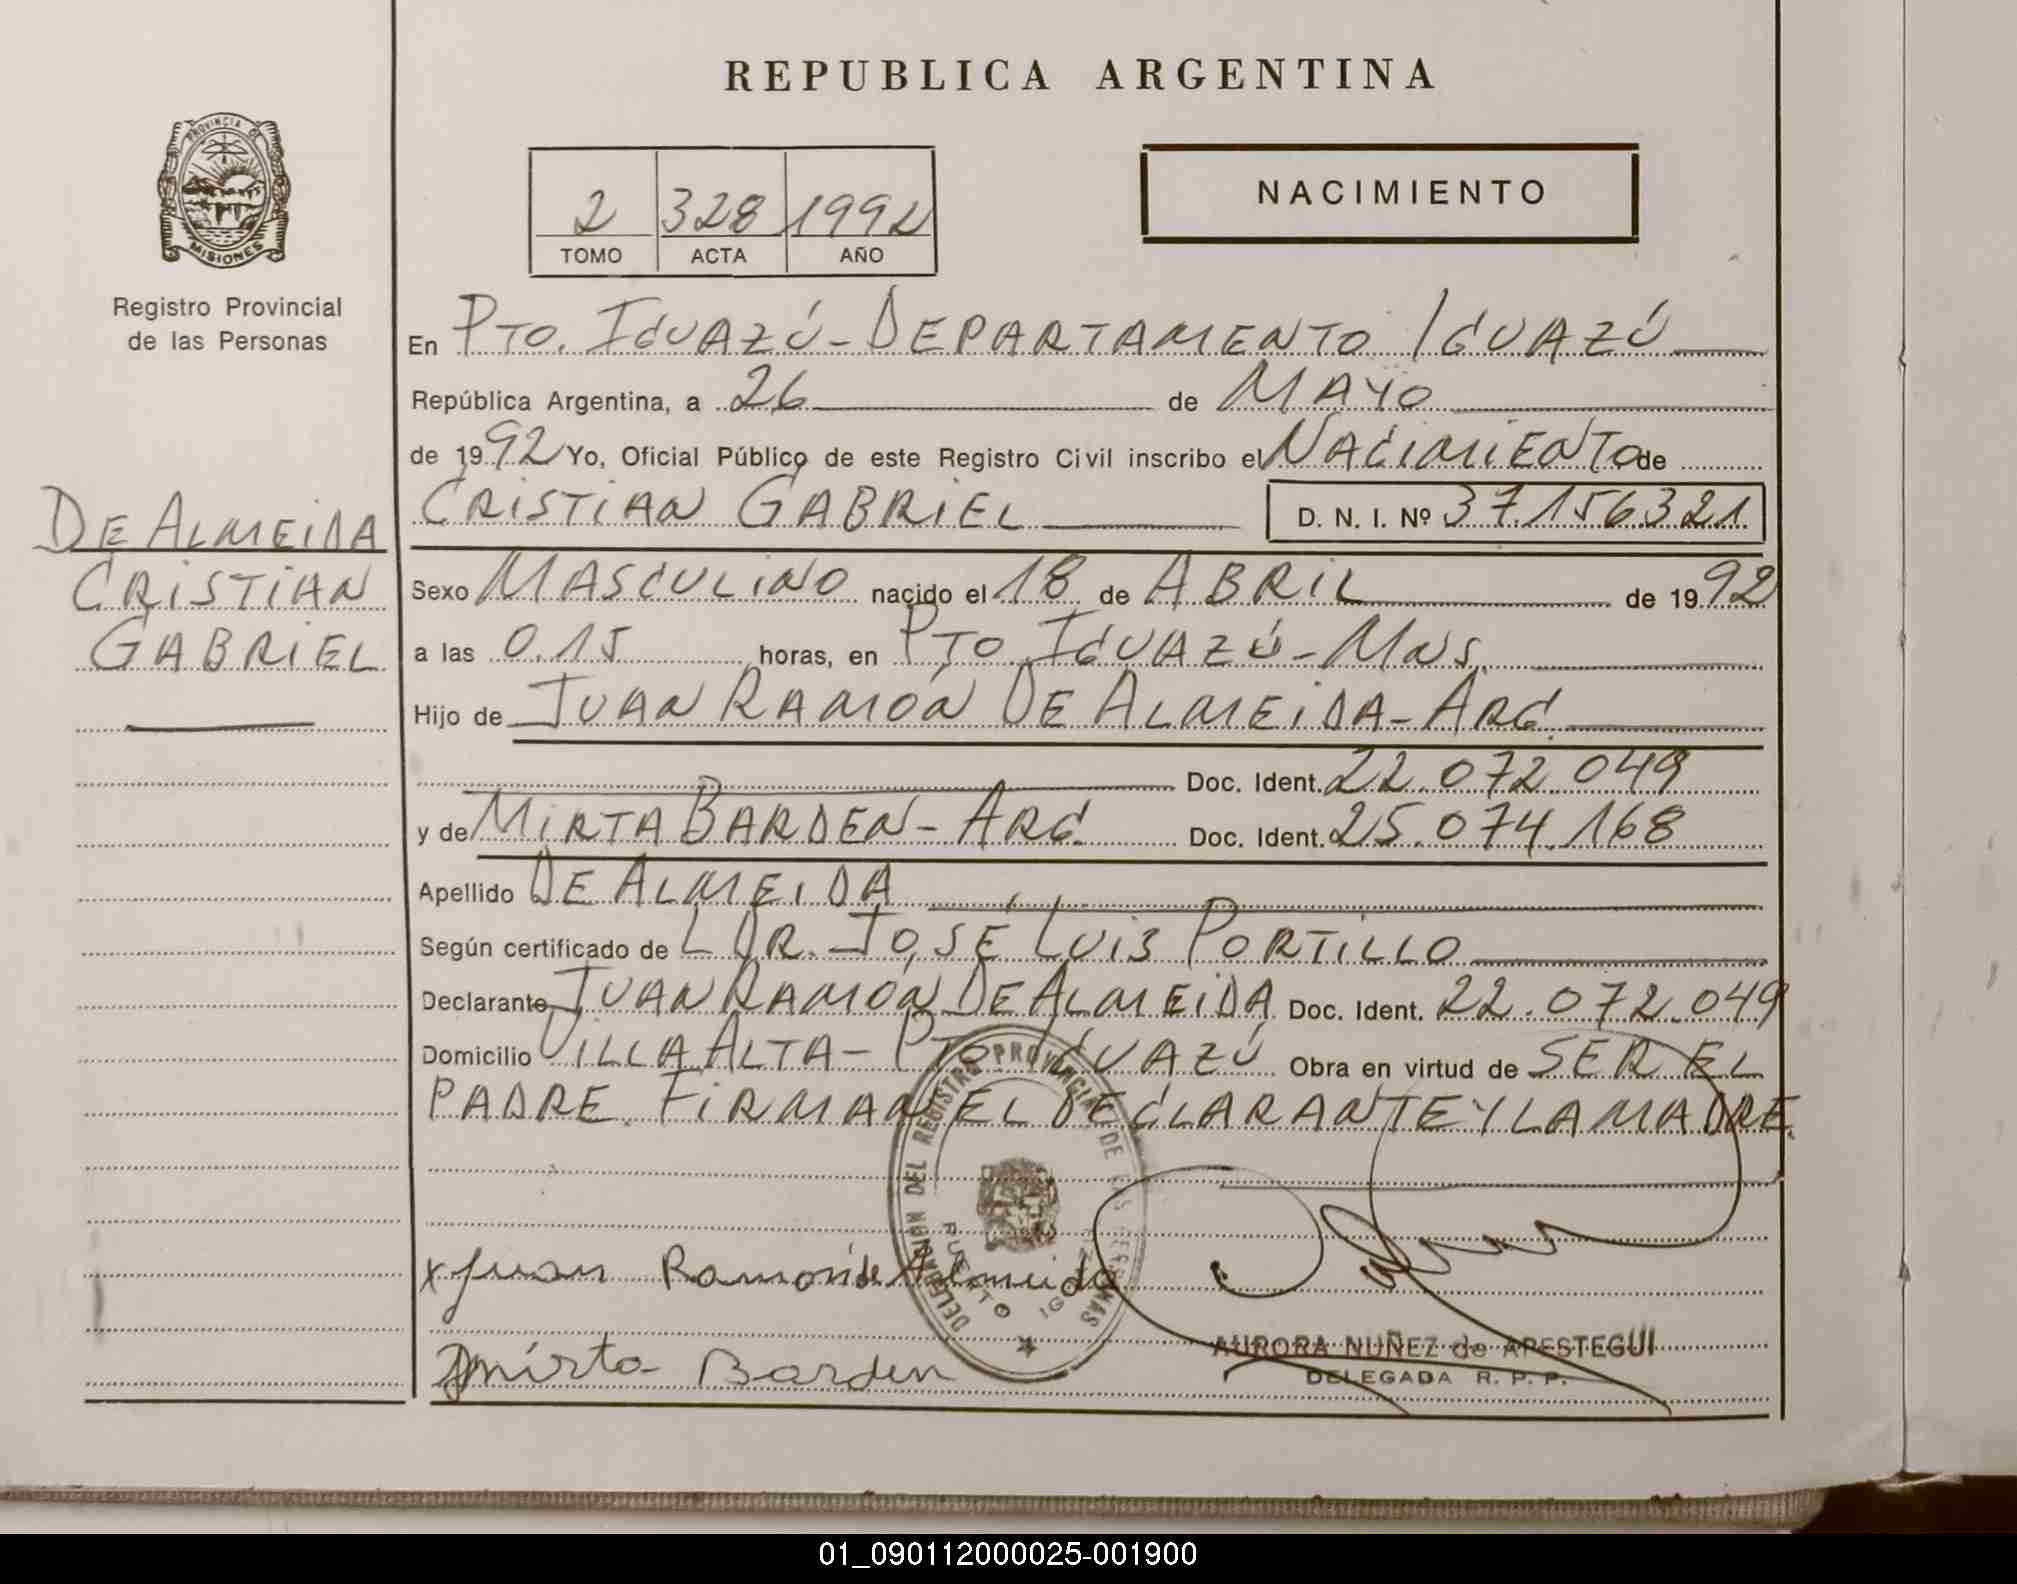 REPUBLICA ARGENTINA
PROVINCIA DE
MISIONES
Registro Provincial
de las Personas
2 328 1992
TOMO ACTA AÑO
NACIMIENTO
En PTO. IGUAZÚ - DEPARTAMENTO IGUAZÚ
República Argentina, a 26 de MAYO
de 1992 Yo, Oficial Público de este Registro Civil inscribo el NACIMIENTO de
CRISTIAN GABRIEL D. N. I. Nº 37.156.321
DE ALMEIDA
CRISTIAN
GABRIEL
Sexo MASCULINO nacido el 18 de ABRIL de 1992
a las 0.15 horas, en PTO. IGUAZÚ - MNS.
Hijo de JUAN RAMÓN DE ALMEIDA - ARG.
Doc. Ident. 22.072.049
y de MIRTA BARDEN - ARG. Doc. Ident. 25.074.168
Apellido DE ALMEIDA
Según certificado de L DR. JOSÉ LUIS PORTILLO
Declarante JUAN RAMÓN DE ALMEIDA Doc. Ident. 22.072.049
Domicilio VILLA ALTA - PTO IGUAZÚ Obra en virtud de SER EL
PADRE. FIRMAN EL DECLARANTE Y LA MADRE.
DELEGACION DEL REGISTRO PROVINCIAL DE LAS PERSONAS
PUERTO IGUAZU
x Juan Ramón de Almeida
Mirta Barden
AURORA NUÑEZ de APESTEGUI
DELEGADA R. P. P.
01_090112000025-001900